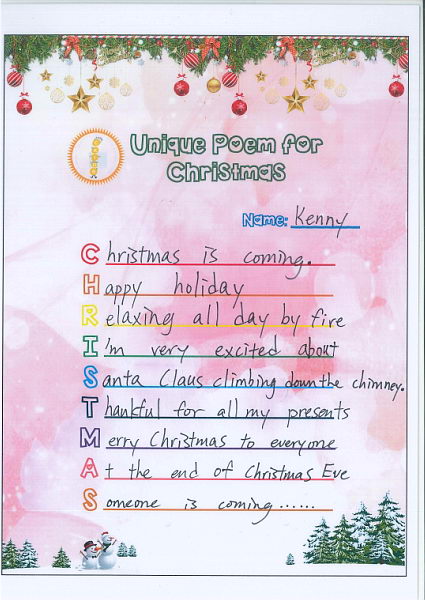 Unique Poem for
Christmas
Name: Kenny
Christmas is coming.
Happy holiday
Relaxing all day by fire
I'm very excited about
Santa Claus climbing down the chimney.
Thankful for all my presents
Merry Christmas to everyone
At the end of Christmas Eve
Someone is coming......